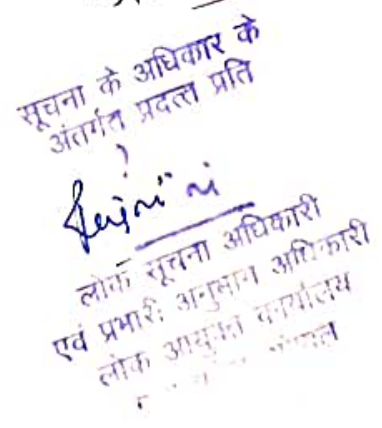 सूचना के अधिकार के
अंतर्गत प्रदत्त प्रति
लोक सूचना अधिकारी
एवं प्रभारी अनुभाग अधिकारी
लोक आयुक्त कार्यालय